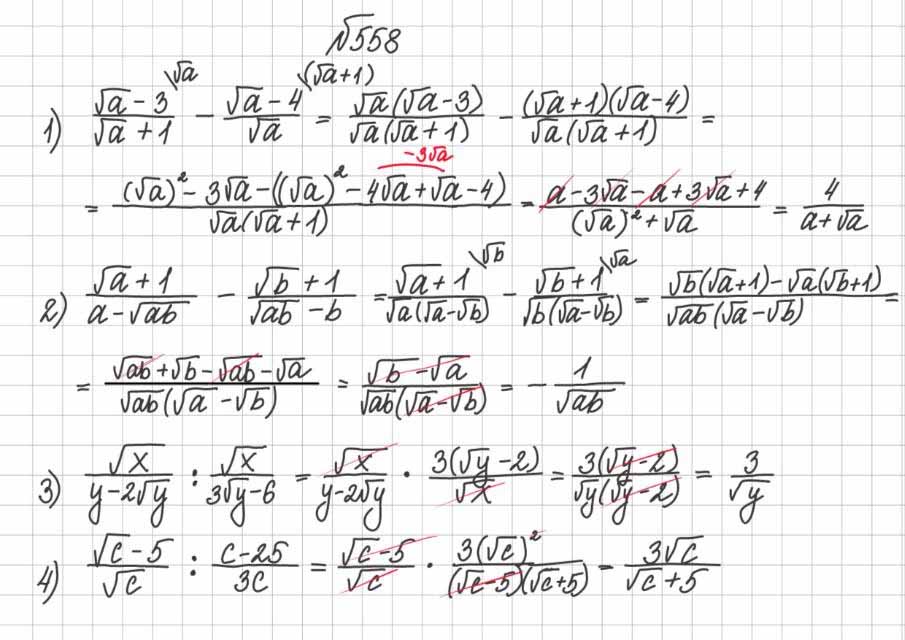 √558
1) (√a - 3)/(√a + 1) \√a - (√a - 4)/√a \(√a + 1) = √a(√a - 3)/(√a(√a + 1)) - (√a + 1)(√a - 4)/(√a(√a + 1)) =
-3√a
= ((√a)² - 3√a - ((√a)² - 4√a + √a - 4))/(√a(√a + 1)) = (a - 3√a - a + 3√a + 4)/((√a)² + √a) = 4/(a + √a)
2) (√a + 1)/(a - √ab) - (√b + 1)/(√ab - b) = (√a + 1)/(√a(√a - √b)) \√b - (√b + 1)/(√b(√a - √b)) \√a = (√b(√a + 1) - √a(√b + 1))/(√ab(√a - √b)) =
= (√ab + √b - √ab - √a)/(√ab(√a - √b)) = (√b - √a)/(√ab(√a - √b)) = - 1/√ab
3) √x/(y - 2√y) : √x/(3√y - 6) = √x/(y - 2√y) · 3(√y - 2)/√x = 3(√y - 2)/(√y(√y - 2)) = 3/√y
4) (√c - 5)/√c : (c - 25)/3c = (√c - 5)/√c · 3(√c)²/((√c - 5)(√c + 5)) = 3√c/(√c + 5)